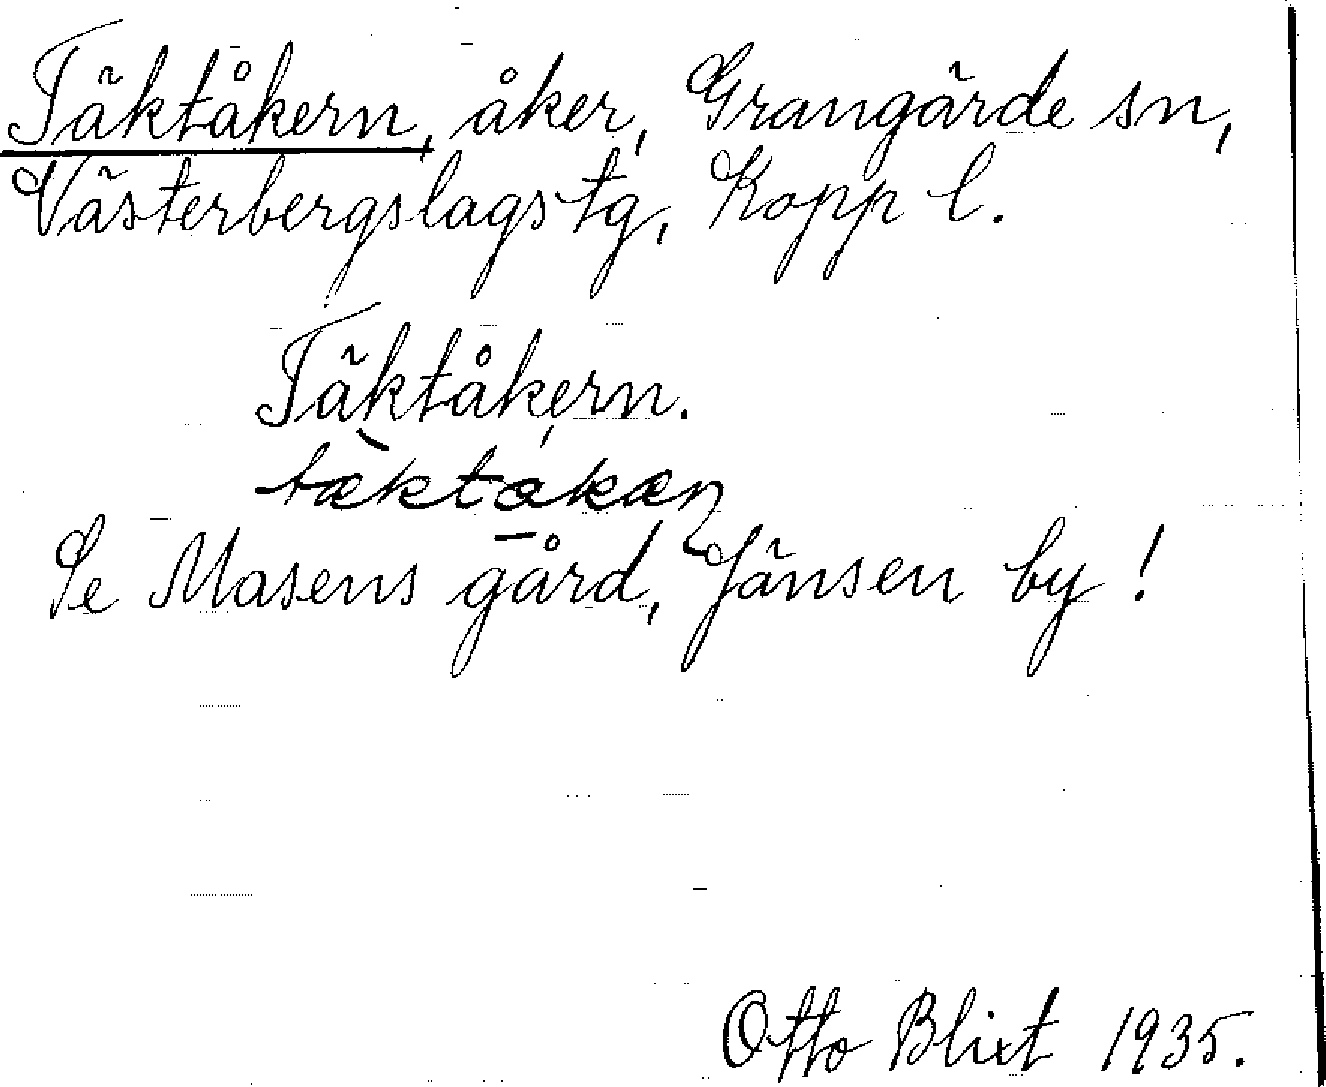 Täktåkern, åker, Grangärde sn,
Västerbergslags tg, Kopp l.
Täktåkern.
tæktåkæɳ
Se Masens gård, Jänsen by!
Otto Blixt 1935.